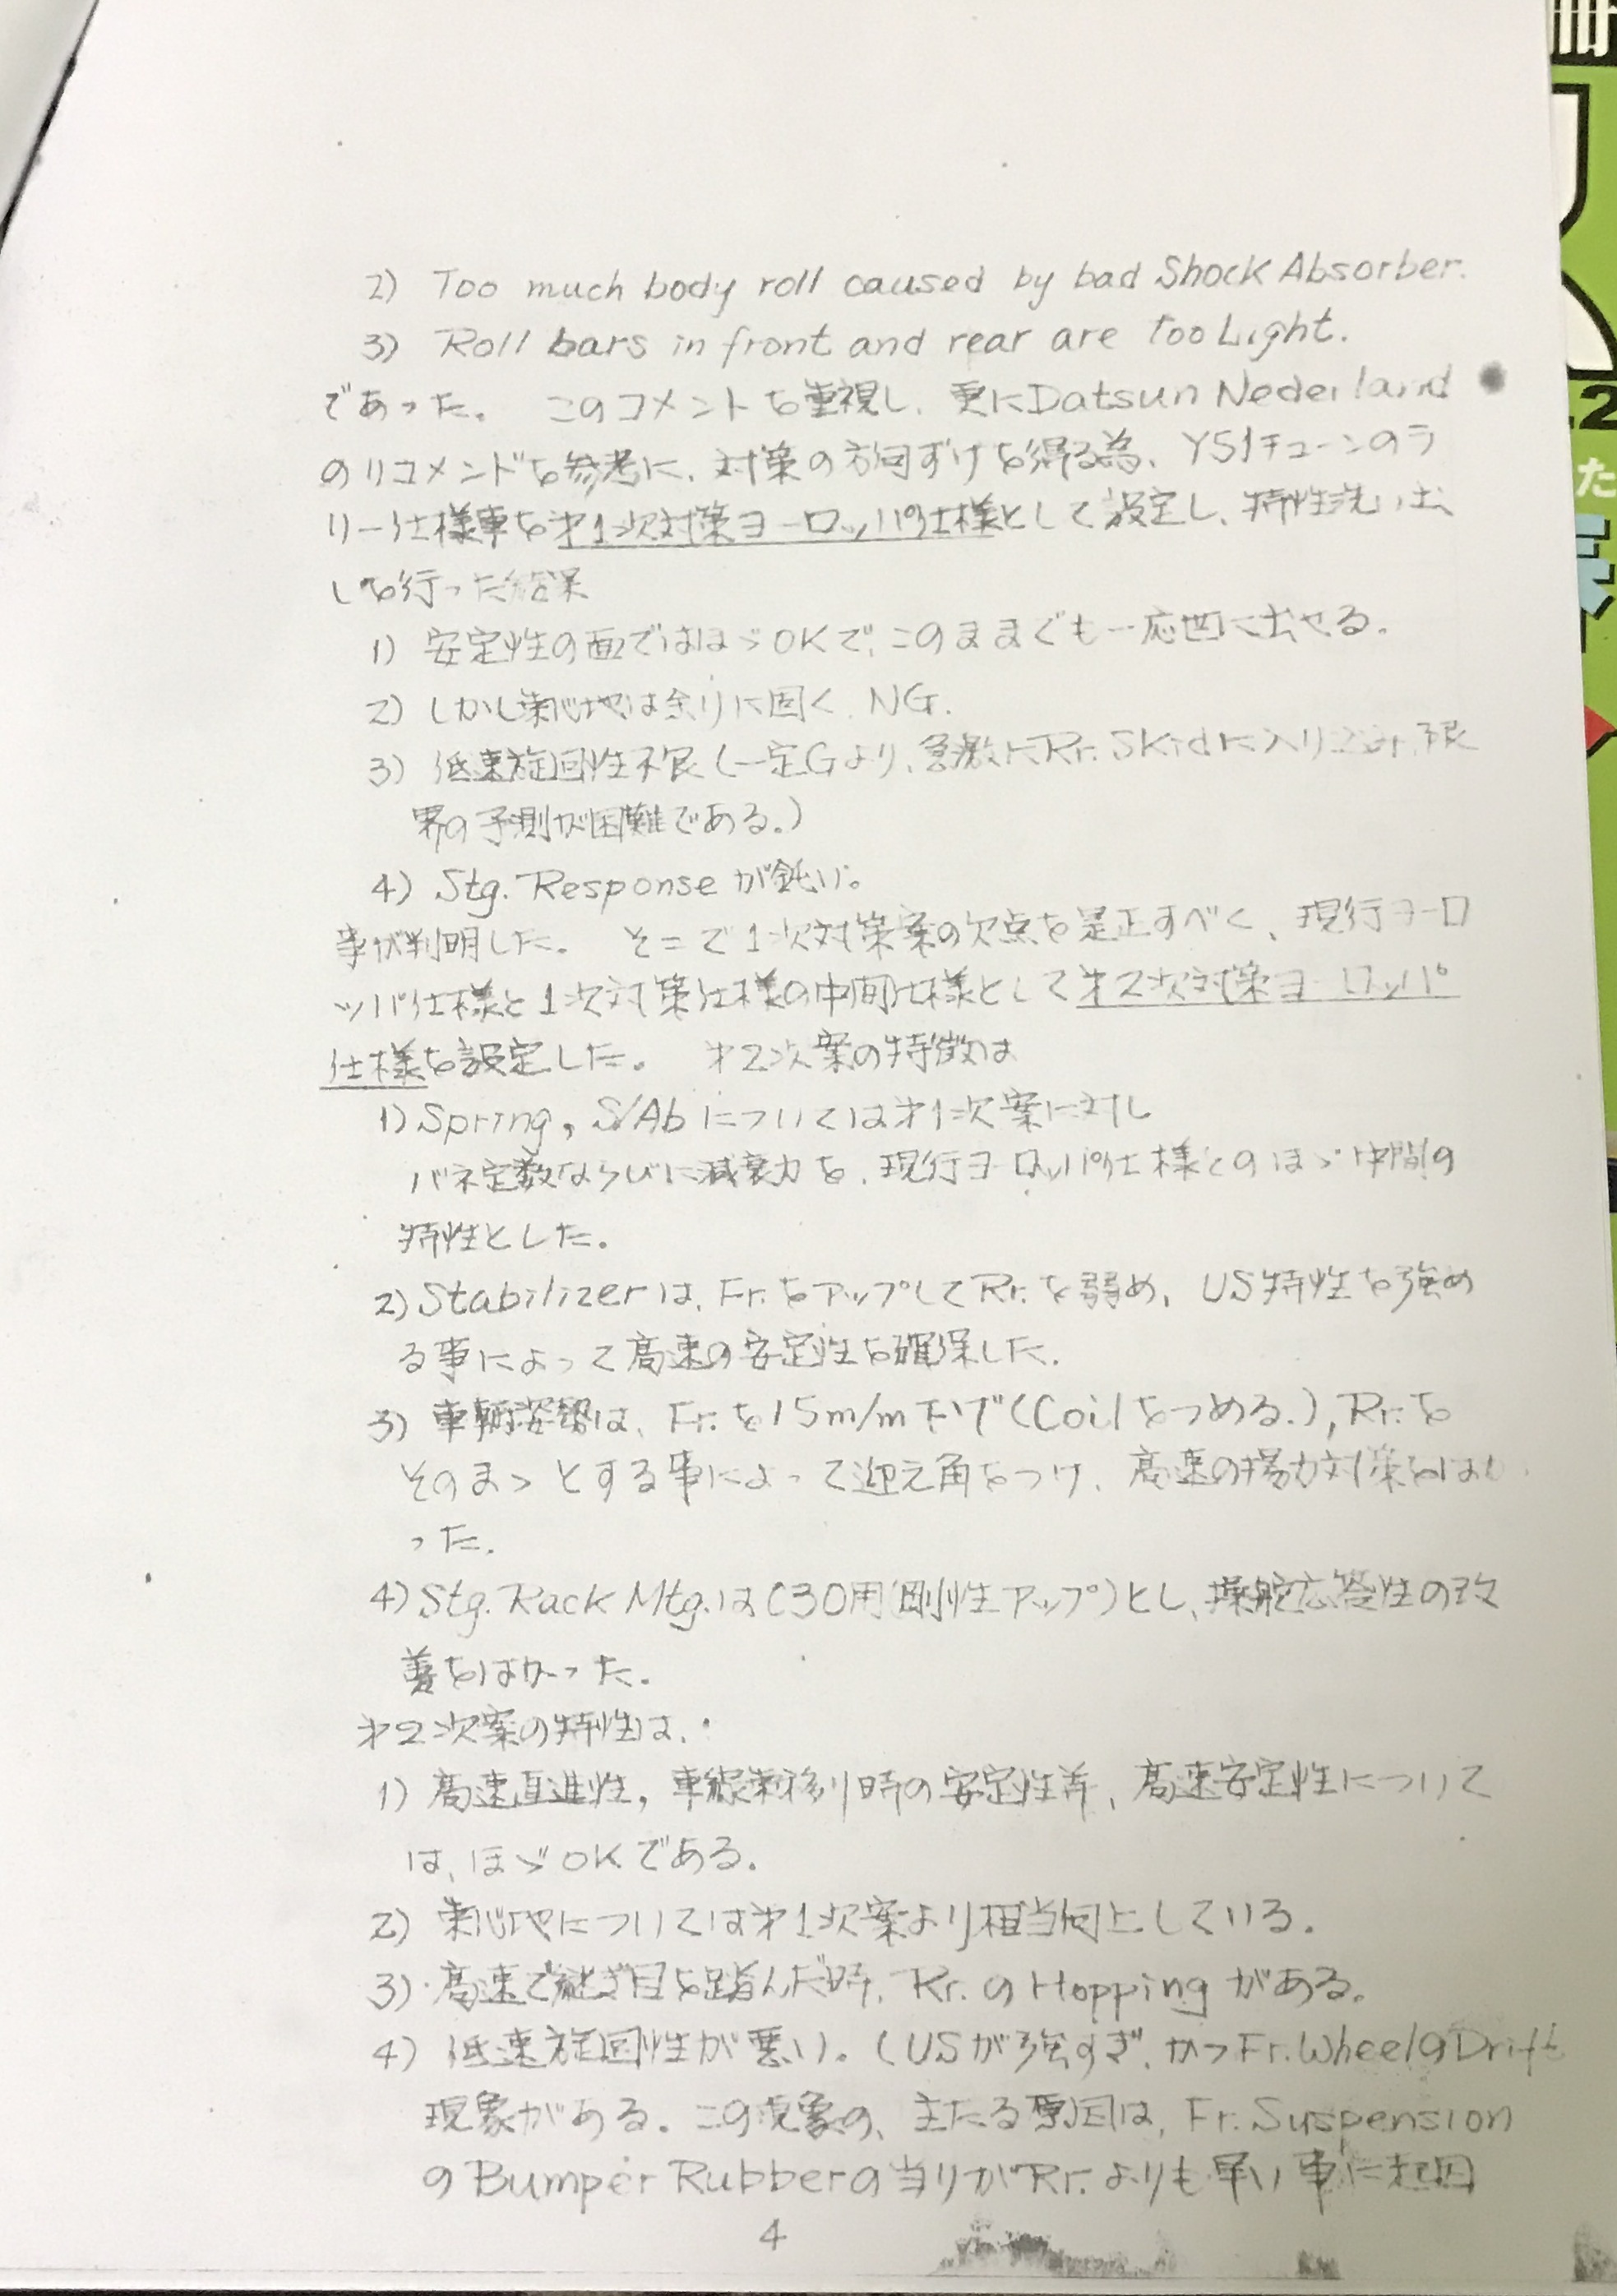 2) Too much body roll caused by bad Shock Absorber.
3) Roll bars in front and rear are Too Light.
であった。 このコメントを重視し、更にDatsun Nederland
のリコメンドを参考に、対策の方向ずけを得る為、Y51チューンのラ
リー仕様車を才1次対策ヨーロッパ仕様として設定し、特性洗い出
しを行った結果
1) 安定性の面ではほゞOKで、このままでも一応世に出せる。
2) しかし乗心地は余りに固く、NG.
3) 低速旋回性不良(一定Gより、急激にRr. Skidに入り込み、限
界の予測が困難である。)
4) Stg. Responseが鈍い。
事が判明した。 そこで1次対策案の欠点を是正すべく、現行ヨーロ
ッパ仕様と1次対策仕様の中間仕様として才2次対策ヨーロッパ
仕様を設定した。 才2次案の特徴は
1) Spring, S/Abについては才1次案に対し
バネ定数ならびに減衰力を、現行ヨーロッパ仕様とのほゞ中間の
特性とした。
2) Stabilizerは、Fr.をアップしてRr.を弱め、US特性を強め
る事によって高速の安定性を確保した。
3) 車輌姿勢は、Fr.を15m/m下げ(Coilをつめる。), Rr.を
そのまゝとする事によって迎え角をつけ、高速の揚力対策をはか
った。
4) Stg. Rack Mtg.は(30用(剛性アップ)とし、操舵応答性の改
善をはかった。
才2次案の特性は、
1) 高速直進性, 車線乗移り時の安定性等、高速安定性について
は、ほゞOKである。
2) 乗心地については才1次案より相当向上している。
3) 高速で継ぎ目を踏んだ時、Rr.のHoppingがある。
4) 低速旋回性が悪い。(USが強すぎ、かつFr. WheelのDrift
現象がある。この現象の、主たる原因は、Fr. Suspension
のBumper Rubberの当りがRr.よりも早い事に起因
4
冊
た